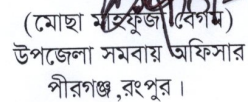 (মোছাঃ মাহফুজা বেগম)
উপজেলা সমবায় অফিসার
পীরগঞ্জ ,রংপুর ।